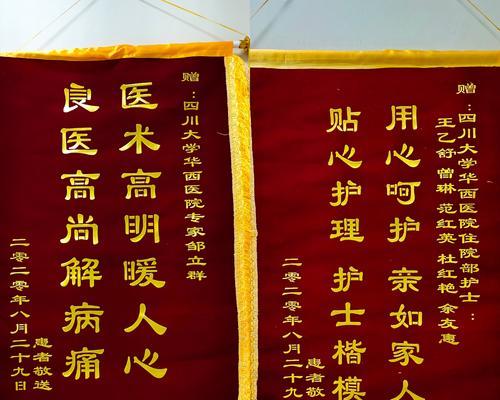 赠：四川大学华西医院专家邹立群
医术高明暖人心
良医高尚解病痛
患者敬送
二零二零年八月二十九日
赠：四川大学华西医院住院部护士：
王乙舒 曾琳 范红英 杜红艳 余友惠
用心呵护 亲如家人
贴心护理 护士楷模
患者敬
二零二零年八月二十九